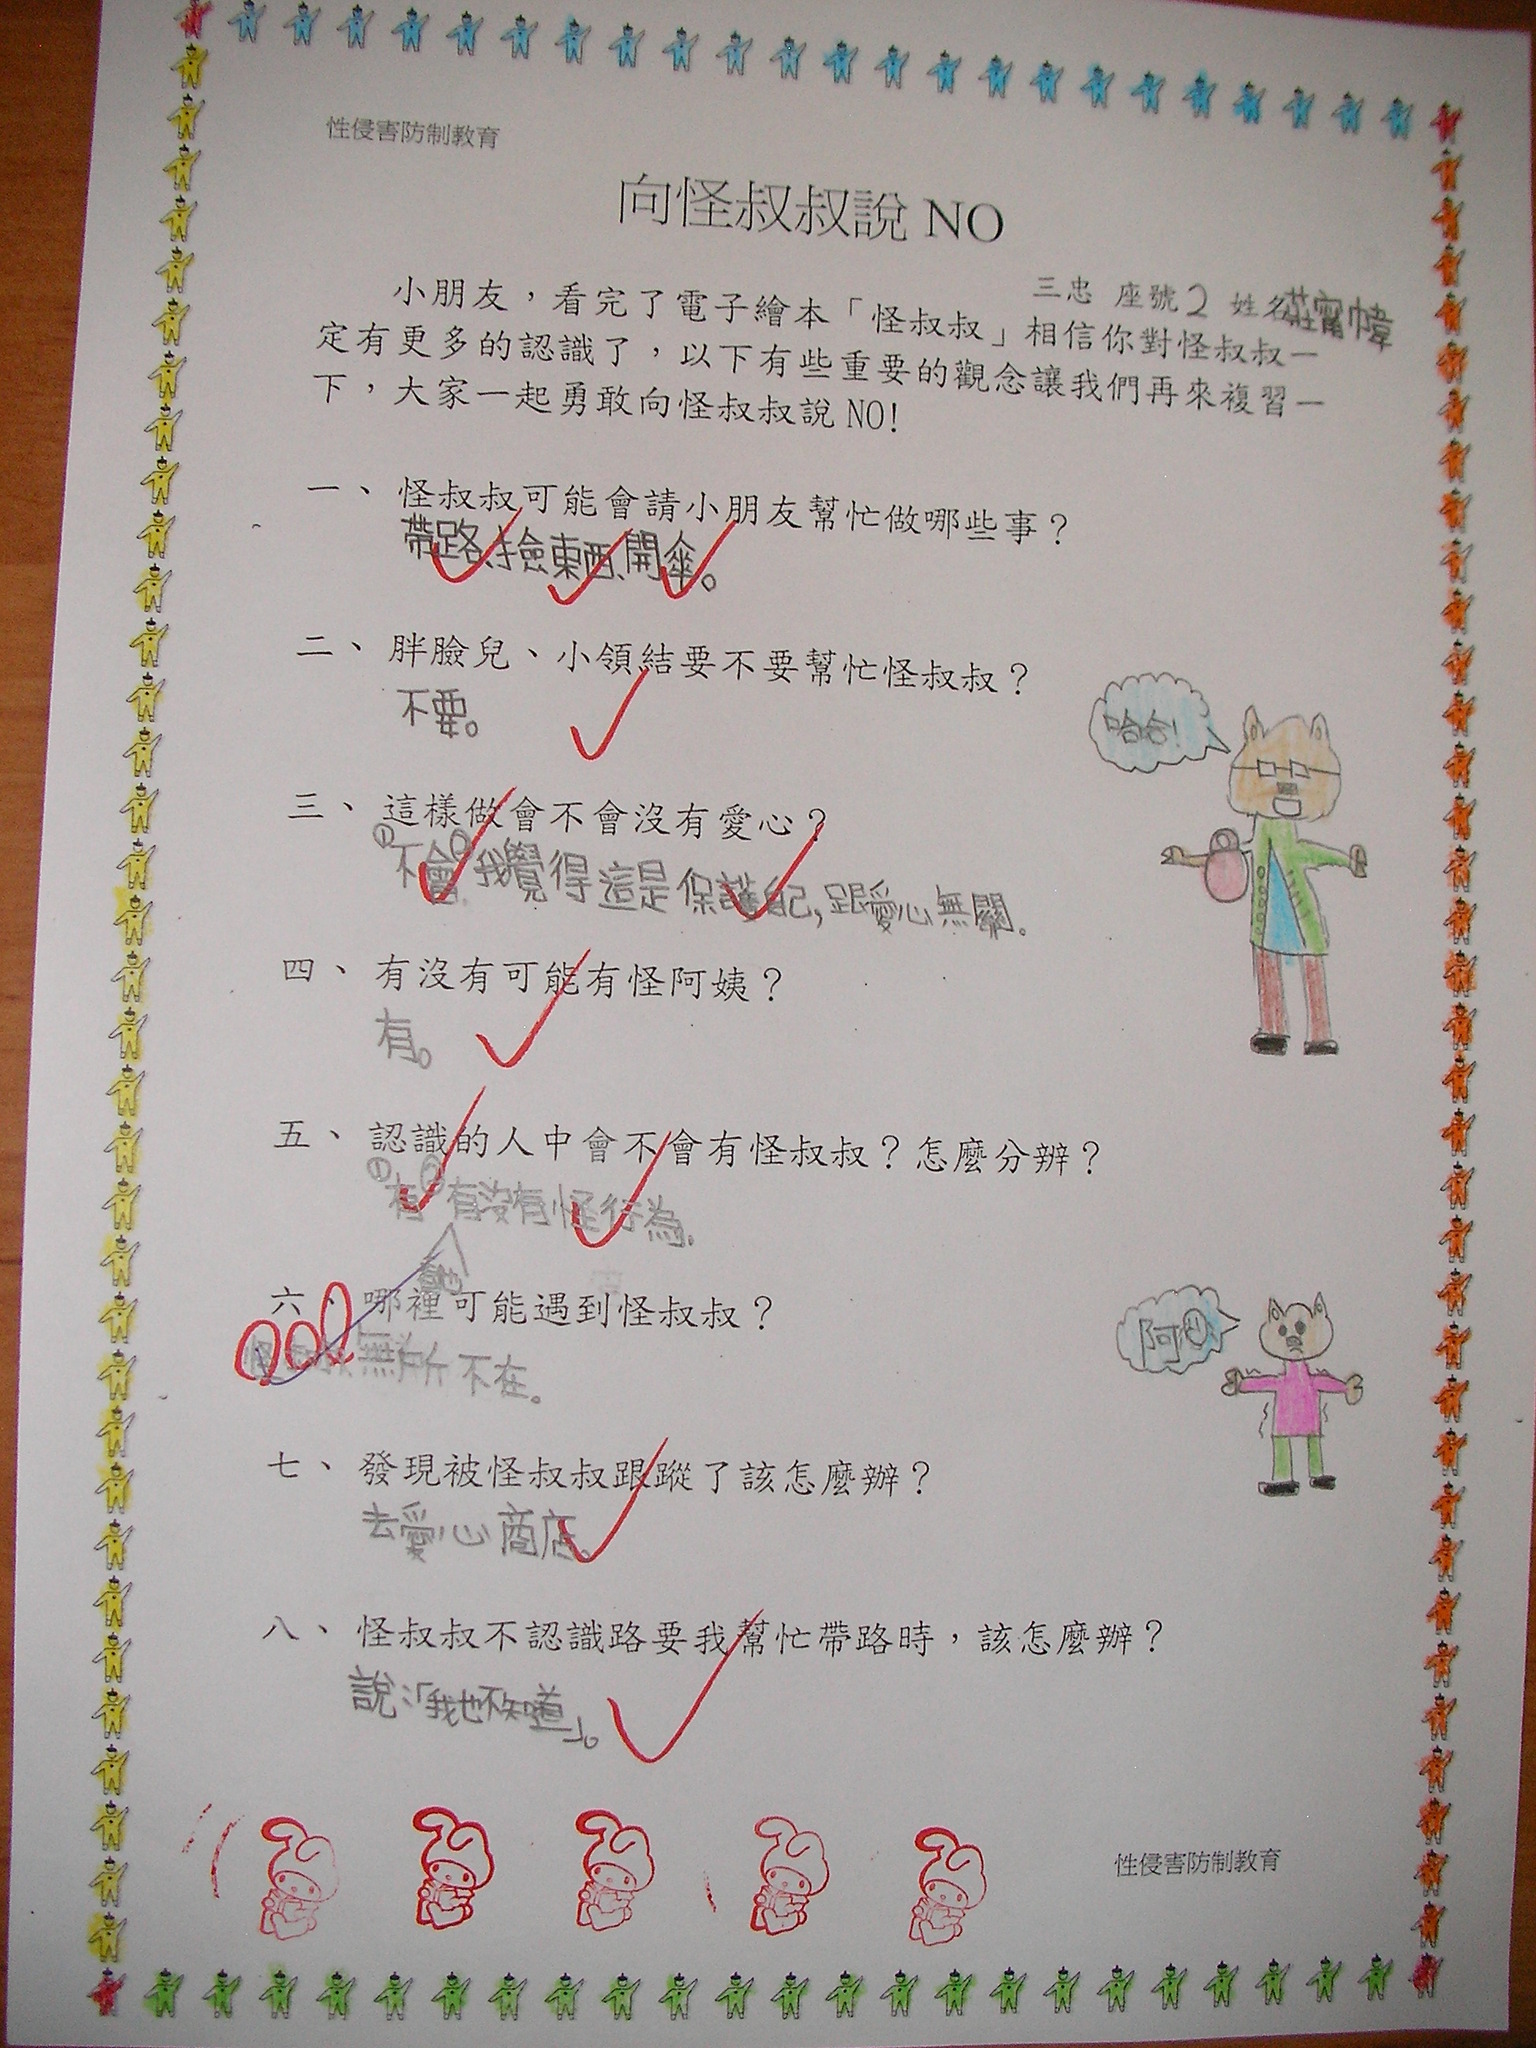 性侵害防制教育
向怪叔叔說 NO
三忠 座號2 姓名莊甯幃
小朋友，看完了電子繪本「怪叔叔」相信你對怪叔叔一
定有更多的認識了，以下有些重要的觀念讓我們再來複習一
下，大家一起勇敢向怪叔叔說 NO!
一、怪叔叔可能會請小朋友幫忙做哪些事？
帶路、撿東西、開傘。
二、胖臉兒、小領結要不要幫忙怪叔叔？
不要。
哈哈!
三、這樣做會不會沒有愛心？
①不會②我覺得這是保護自己,跟愛心無關。
四、有沒有可能有怪阿姨？
有。
五、認識的人中會不會有怪叔叔？怎麼分辨？
①有②有沒有怪行為。
看他
六、哪裡可能遇到怪叔叔？
怪叔叔無所不在。
七、發現被怪叔叔跟蹤了該怎麼辦？
去愛心商店。
八、怪叔叔不認識路要我幫忙帶路時，該怎麼辦？
說:「我也不知道」。
性侵害防制教育